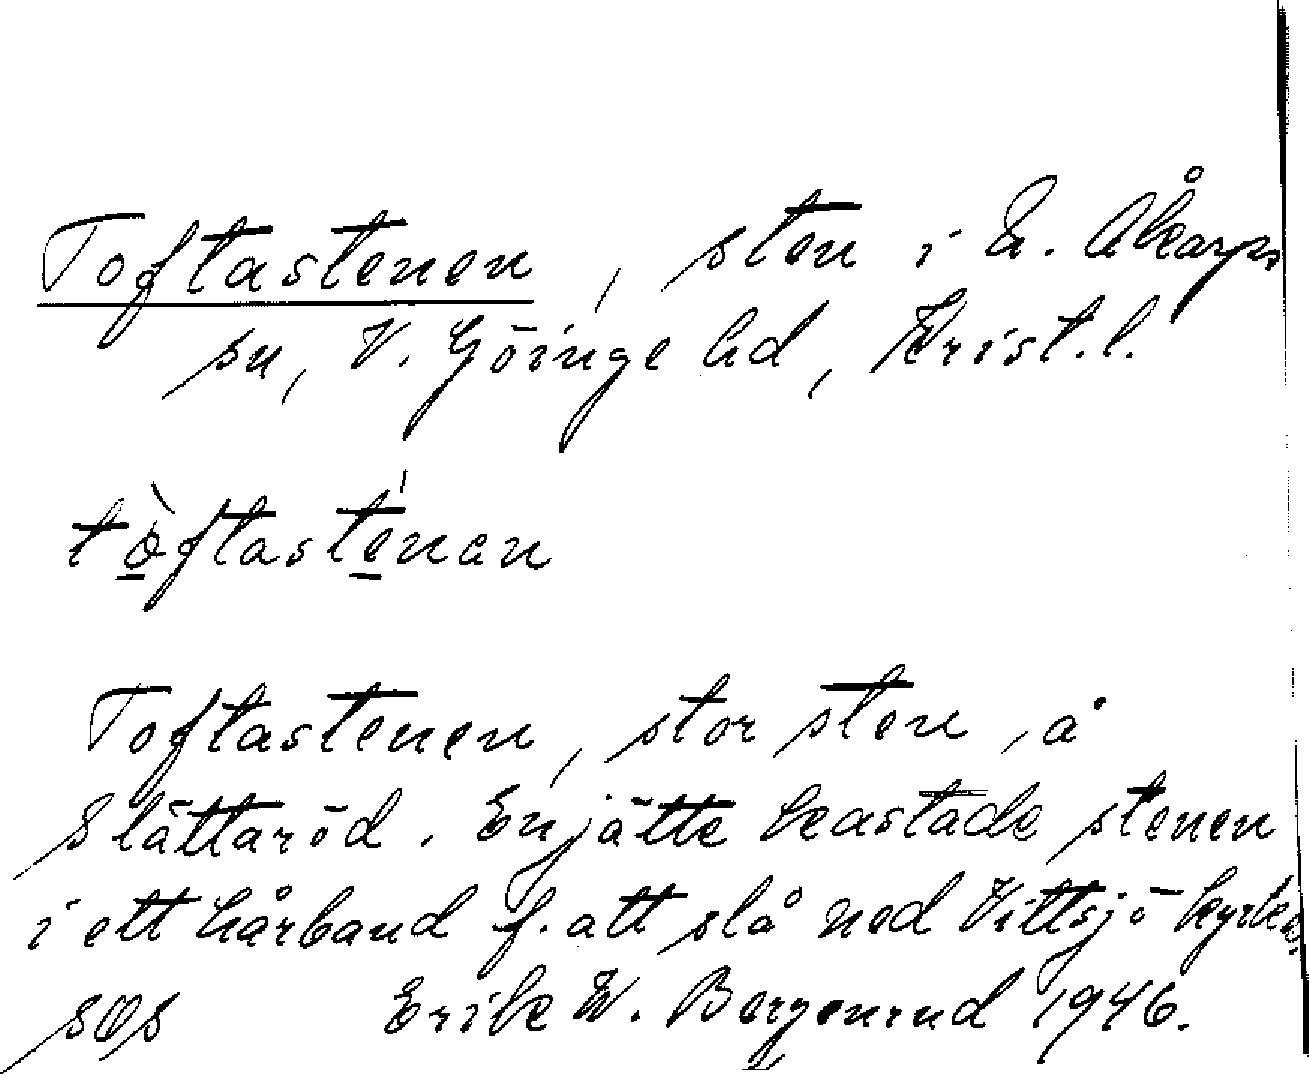 Toftastenen, sten i N. Åkarps
sn, V. Göinge hd, Krist. l.
tòftasténan
Toftastenen, stor sten, å
Slättaröd. En jätte kastade stenen
i ett hårband f. att slå ned Vittsjö kyrka.
Erik W. Bergenrud 1946.